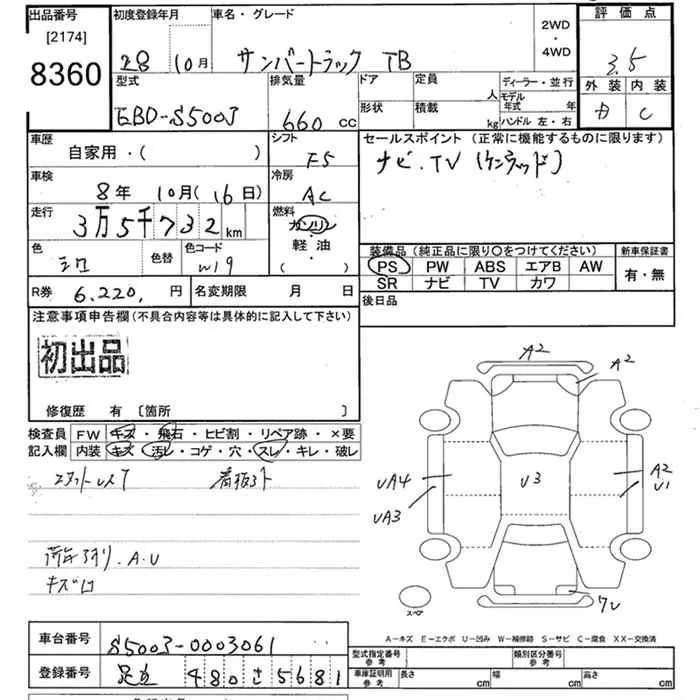 出品番号
[2174]
8360
初度登録年月
28 10月
車名・グレード
サンバートラック TB
2WD
・
4WD
評価点
3.5
外装 内装
C
型式
EBD-S500J
排気量
660 cc
ドア
形状
定員
人
積載
kg
ディーラー・並行
モデル年式 年
ハンドル 左・右
車歴
自家用・( )
シフト
F5
セールスポイント (正常に機能するものに限ります)
ナビ.TV (ケンウッド)
車検
8年 10月(16日)
冷房
AC
走行
3万5千732km
燃料
ガソリン
・
軽油
( )
色
シロ
色替
色コード
W19
装備品 (純正品に限り〇をつけてください)
PS PW ABS エアB AW
SR ナビ TV カワ
新車保証書
有・無
R券 6,220, 円
名変期限 月 日
後日品
注意事項申告欄 (不具合内容等は具体的に記入して下さい)
初出品
修復歴 有 [箇所 ]
検査員
記入欄
FW キズ・飛石・ヒビ割・リペア跡・×要
内装 キズ・汚レ・コゲ・穴・スレ・キレ・破レ
A.U
キズ
A2
A2
UA4
UA3
U3
A2
U1
スペア
A-キズ E-エクボ U-凹み W-補修跡 S-サビ C-腐食 XX-交換済
車台番号
S500J-0003061
登録番号
足立 480 さ 5681
型式指定番号
参考
類別区分番号
参考
車庫証明用
参考
長さ cm
幅 cm
高さ cm